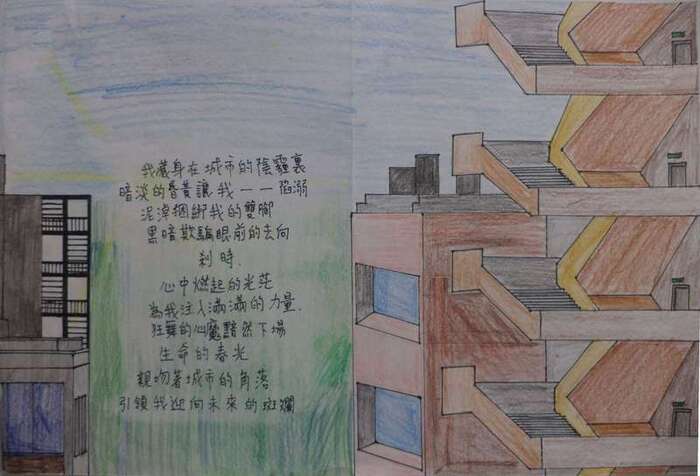 我藏身在城市的陰霾裏
暗淡的昏黃讓我一一陷溺
泥濘捆綁我的雙腳
黑暗欺騙眼前的去向
剎時，
心中燃起的光茫
為我注入滿滿的力量，
狂舞的心魔黯然下場
生命的春光
親吻著城市的角落
引領我迎向未來的斑斕